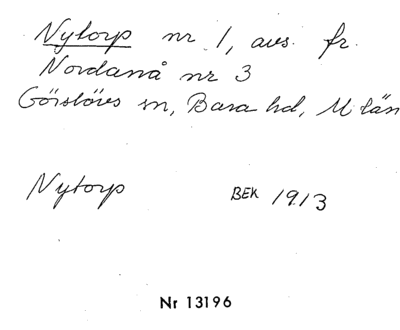 Nytorp nr 1, avs. fr.
Nordanå nr 3
Görslövs sn, Bara hd, M län
Nytorp BEK 1913
Nr 13196